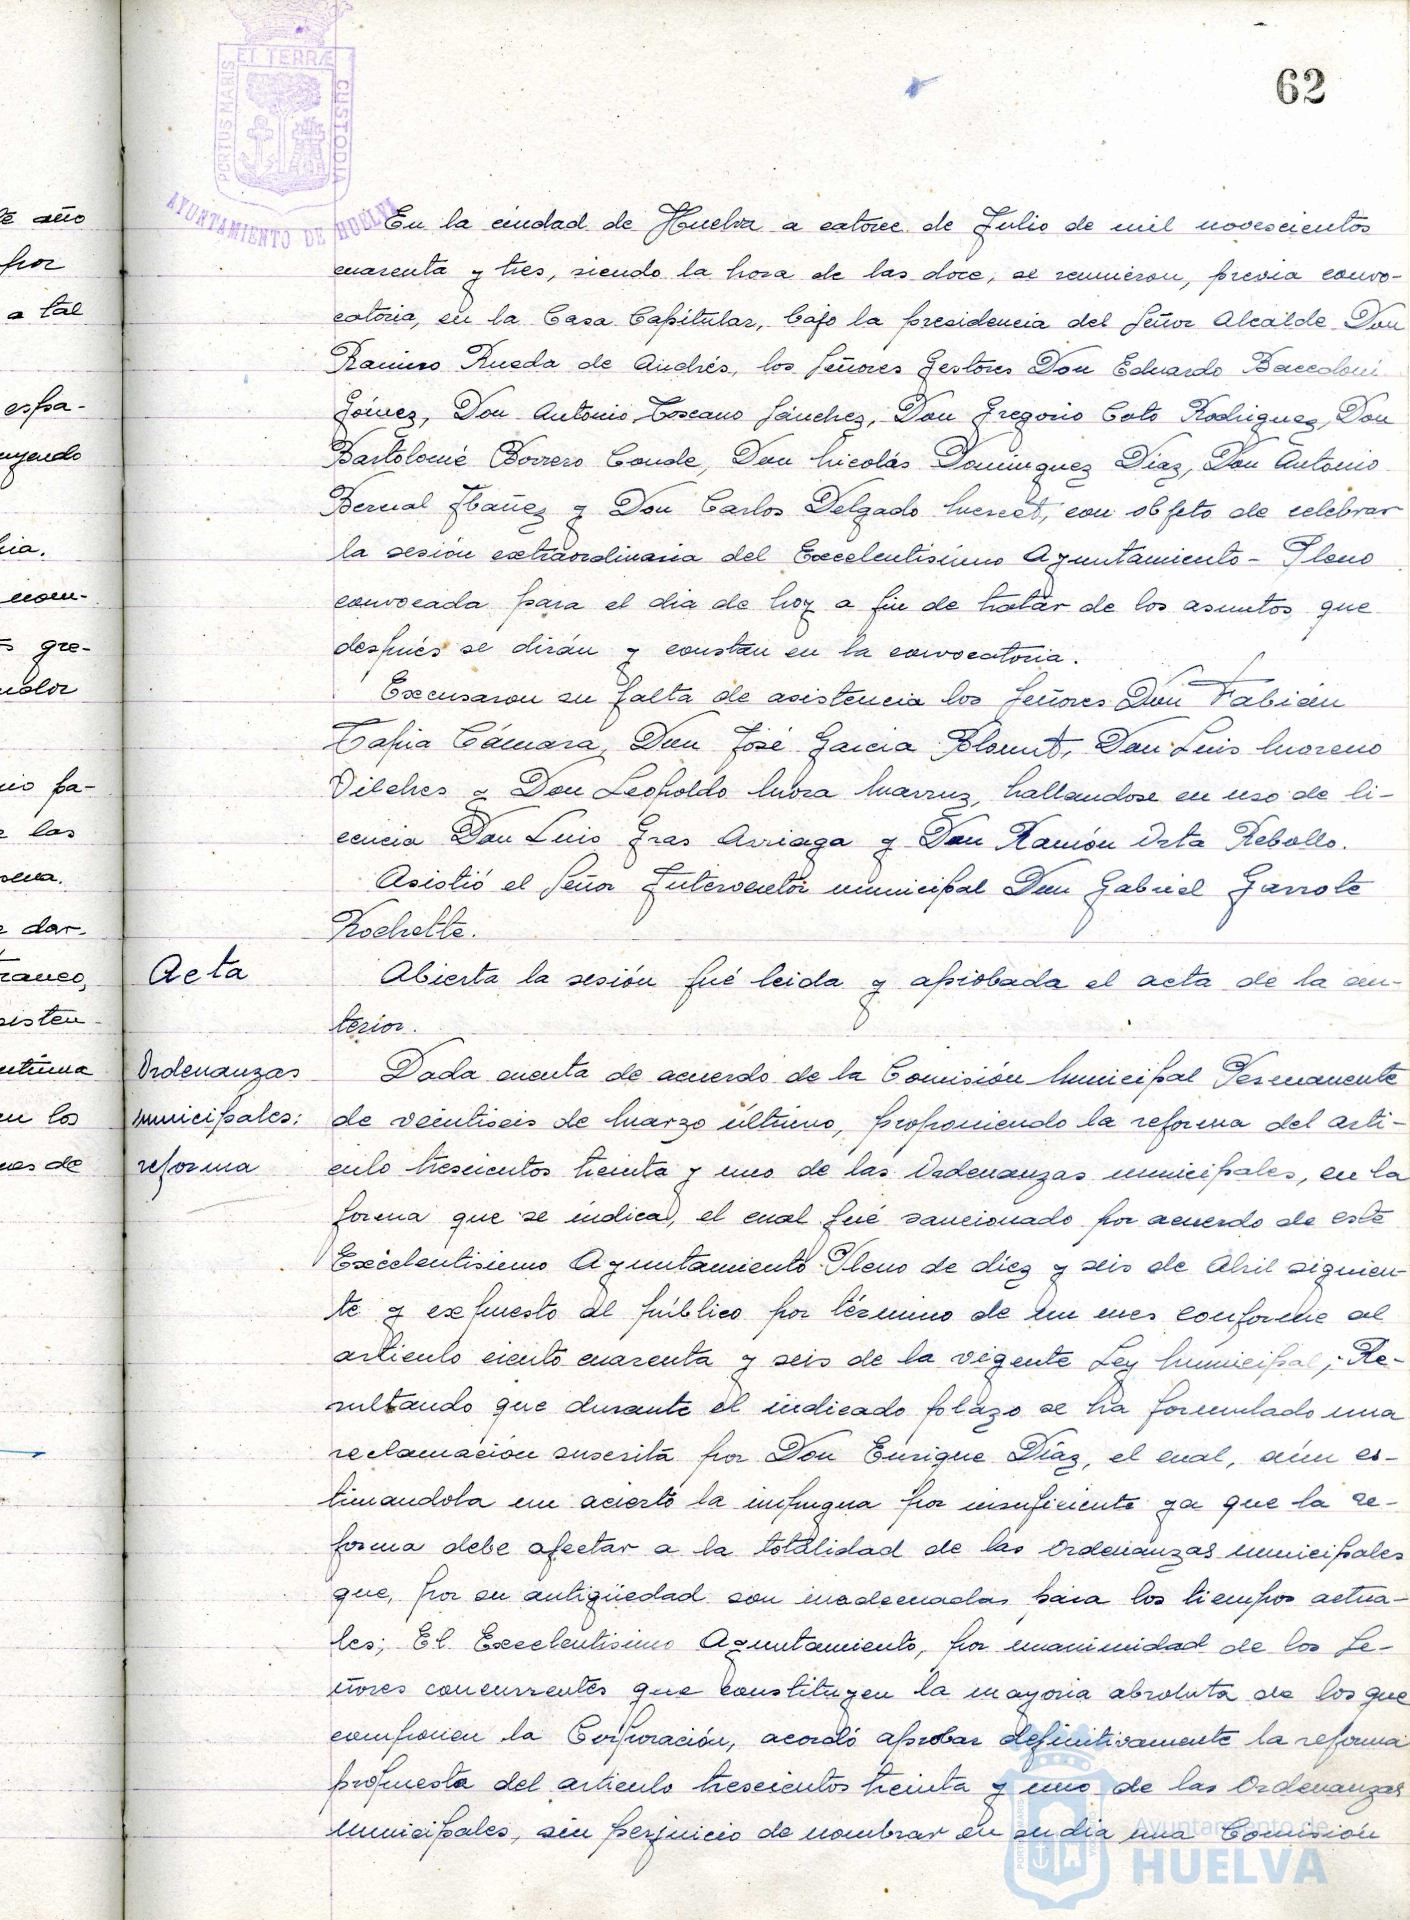 62
PORTUS MARIS ET TERRÆ CUSTODIA
AYUNTAMIENTO DE HUELVA
En la ciudad de Huelva a catorce de Julio de mil novescientos
cuarenta y tres, siendo la hora de las doce, se reunieron, previa convo-
catoria, en la Casa Capitular, bajo la presidencia del Señor Alcalde Don
Ramiro Rueda de Andrés, los Señores Gestores Don Eduardo Baccedoni
Gómez, Don Antonio Toscano Sánchez, Don Gregorio Coto Rodriguez, Don
Bartolomé Borrero Conde, Don Nicolás Dominguez Díaz, Don Antonio
Bernal Ibañez y Don Carlos Delgado, con objeto de celebrar
la sesión extraordinaria del Excelentisimo Ayuntamiento-Pleno
convocada para el dia de hoy a fin de tratar de los asuntos que
después se dirán y constan en la convocatoria.
Excusaron su falta de asistencia los Señores Don Fabián
Tapia Cámara, Don José Garcia Blomnt, Don Luis Moreno
Vilches y Don Leopoldo Mora Marruz, hallandose en uso de li-
cencia Don Luis Gras Arriaga y Don Ramón Orta Rebollo.
Asistió el Señor Interventor municipal Don Gabriel Garrote
Rochette.
Acta
Abierta la sesión fué leida y aprobada el acta de la an-
terior.
Ordenanzas
municipales:
reforma
Dada cuenta de acuerdo de la Comisión Municipal Permanente
de veintiseis de Marzo último, proponiendo la reforma del arti-
culo trescientos treinta y uno de las Ordenanzas municipales, en la
forma que se indica, el cual fué sancionado por acuerdo de este
Excelentisimo Ayuntamiento Pleno de diez y seis de Abril siguien-
te y expuesto al público por término de un mes conforme al
articulo ciento cuarenta y seis de la vigente Ley Municipal; Re-
sultando que durante el indicado plazo se ha formulado una
reclamación suscrita por Don Enrique Díaz, el cual, aún es-
timandola un acierto la impugna por insuficiente ya que la re-
forma debe afectar a la totalidad de las Ordenanzas municipales
que, por su antigüedad son inadecuadas para los tiempos actua-
les; El Excelentisimo Ayuntamiento, por unanimidad de los Se-
ñores concurrentes que constituyen la mayoria absoluta de los que
componen la Corporación, acordó aprobar definitivamente la reforma
propuesta del articulo trescientos treinta y uno de las Ordenanzas
municipales, sin perjuicio de nombrar en su dia una Comisión
Ayuntamiento de
HUELVA